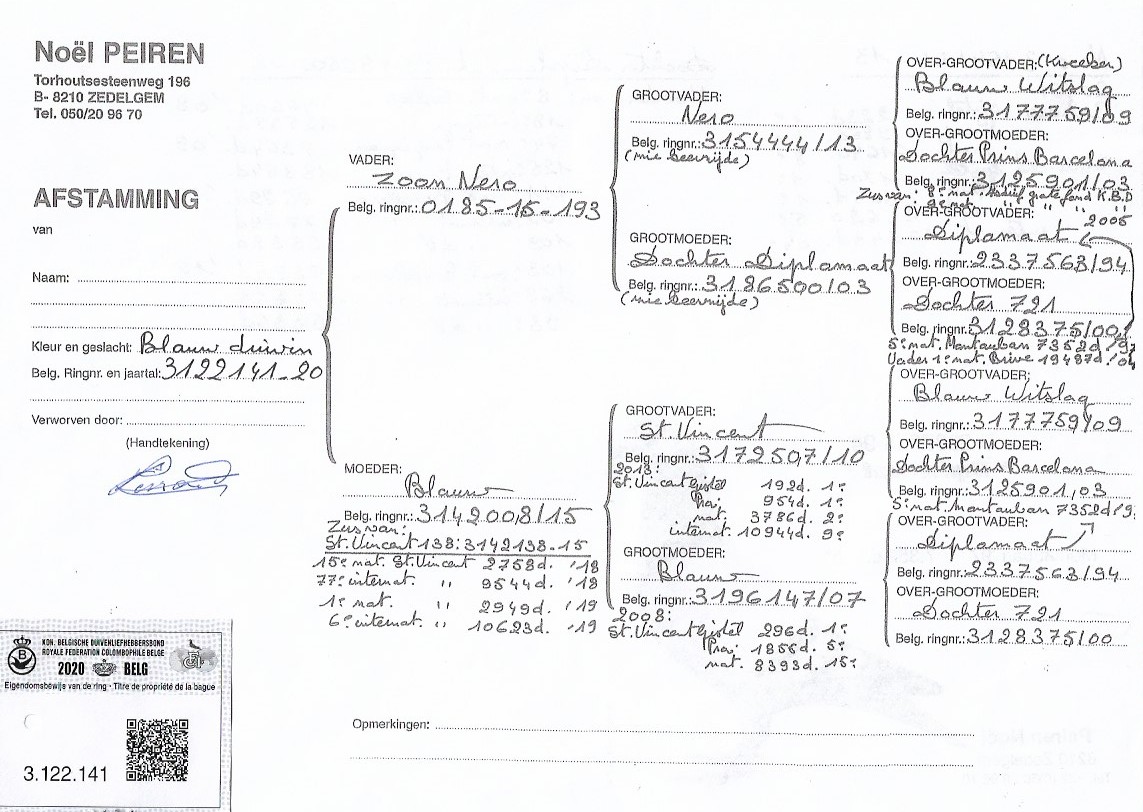 Noël PEIREN
Torhoutsesteenweg 196
B- 8210 ZEDELGEM
Tel. 050/20 96 70
AFSTAMMING
van
Naam:
Kleur en geslacht: Blauw duivin
Belg. Ringnr. en jaartal: 3122141-20
Verworven door:
(Handtekening)
VADER:
Zoon Nero
Belg. ringnr.: 0185-15-193
MOEDER:
Blauw
Belg. ringnr.: 3142008/15
Zus van:
St. Vincent 138: 3142138-15
15e nat. St. Vincent 2758d. '18
77e internat. " 9544d. '18
1e nat. " 2949d. '19
6e internat. " 10623d. '19
GROOTVADER:
Nero
Belg. ringnr.: 3154444/13
GROOTMOEDER:
Dochter Diplomaat
Belg. ringnr.: 3186500/03
GROOTVADER:
St. Vincent
Belg. ringnr.: 3172507/10
2013:
St. Vincent Gistel 192d. 1e
Prov. 954d. 1e
nat. 3786d. 2e
internat. 10944d. 9e
GROOTMOEDER:
Blauw
Belg. ringnr.: 3196147/07
2008:
St. Vincent Gistel 296d. 1e
Prov. 1856d. 5e
nat. 8393d. 15e
OVER-GROOTVADER: (Kweeker)
Blauw Witslag
Belg. ringnr.: 3177759/09
OVER-GROOTMOEDER:
Dochter Prins Barcelona
Belg. ringnr.: 3125901/03
Zus van: 8e nat. grote fond K.B.D
2005
OVER-GROOTVADER:
Diplomaat
Belg. ringnr.: 2337563/94
OVER-GROOTMOEDER:
Dochter 721
Belg. ringnr.: 3128375/00
5e nat. Montauban 7352d/97
Vader 1e nat. Brive 19487d/04
OVER-GROOTVADER:
Blauw Witslag
Belg. ringnr.: 3177759/09
OVER-GROOTMOEDER:
Dochter Prins Barcelona
Belg. ringnr.: 3125901,03
5e nat. Montauban 7352d/9
OVER-GROOTVADER:
Diplomaat
Belg. ringnr.: 2337563/94
OVER-GROOTMOEDER:
Dochter 721
Belg. ringnr.: 3128375/00
Opmerkingen:
KON. BELGISCHE DUIVENLIEFHEBBERSBOND
ROYALE FEDERATION COLOMBOPHILE BELGE
2020 BELG
Eigendomsbewijs van de ring - Titre de propriété de la bague
3.122.141